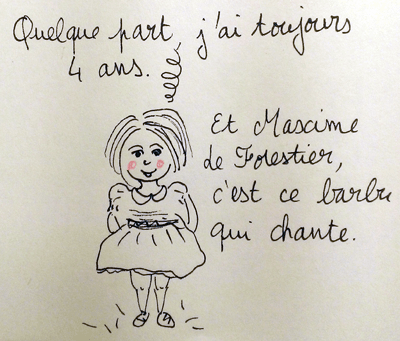 Quelque part, j'ai toujours
4 ans.
Et Maxime
de Forestier,
c'est ce barbu
qui chante.